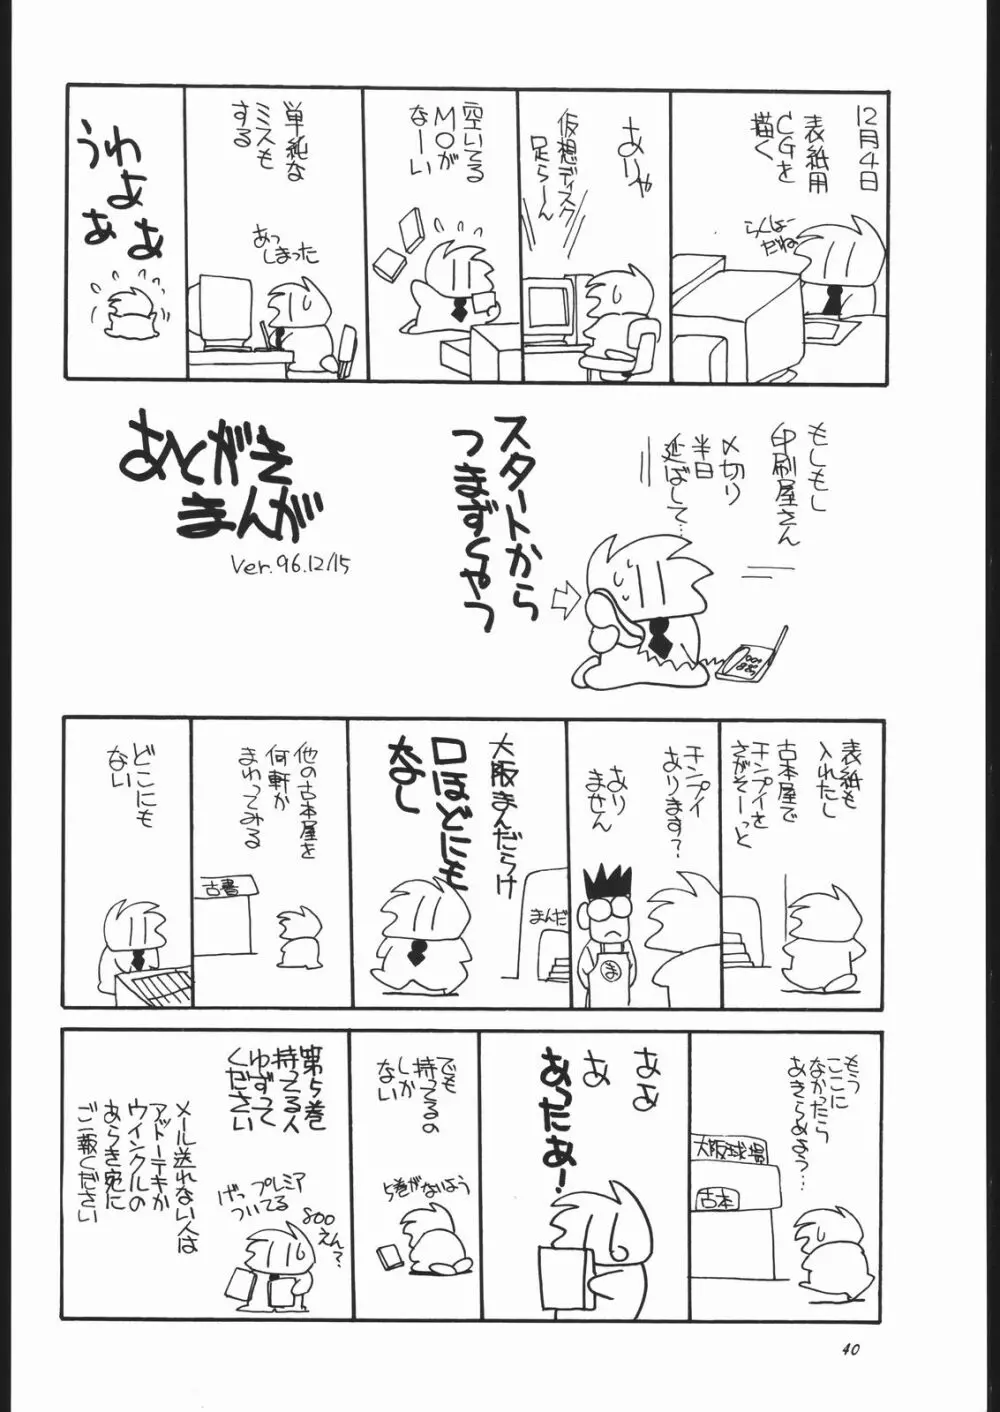 12月4日
表紙用
CGを
描く
らくしょー
だね
ありゃ
仮想ディスク
足らーん
空いてる
MOが
なーい
単純な
ミスも
する
あっ
しまった
うわ
よぁ
ぁ
あとがき
まんが
Ver.96.12/15
もしもし
印刷屋さん
〆切り
半日
延ばして…
スタートから
つまずくやつ
表紙も
入れたし
古本屋で
チンプイを
さがそーっと
チンプイ
あります？
あり
ません
ま
大阪まんだらけ
まんだ
口ほどにも
なし
他の古本屋を
何軒か
まわってみる
古書
どこにも
ない
もう
ここに
なかったら
あきらめよう…
大阪球場
古本
ああ
あ
あったぁ！
でも
持ってるの
しか
ない
5巻がないよう
第5巻
持ってる人
ゆずって
ください
げっ プレミア
ついてる
800
えん？
メール送れない人は
アットーテキか
ウインクルの
あらき宛に
ご一報ください
40